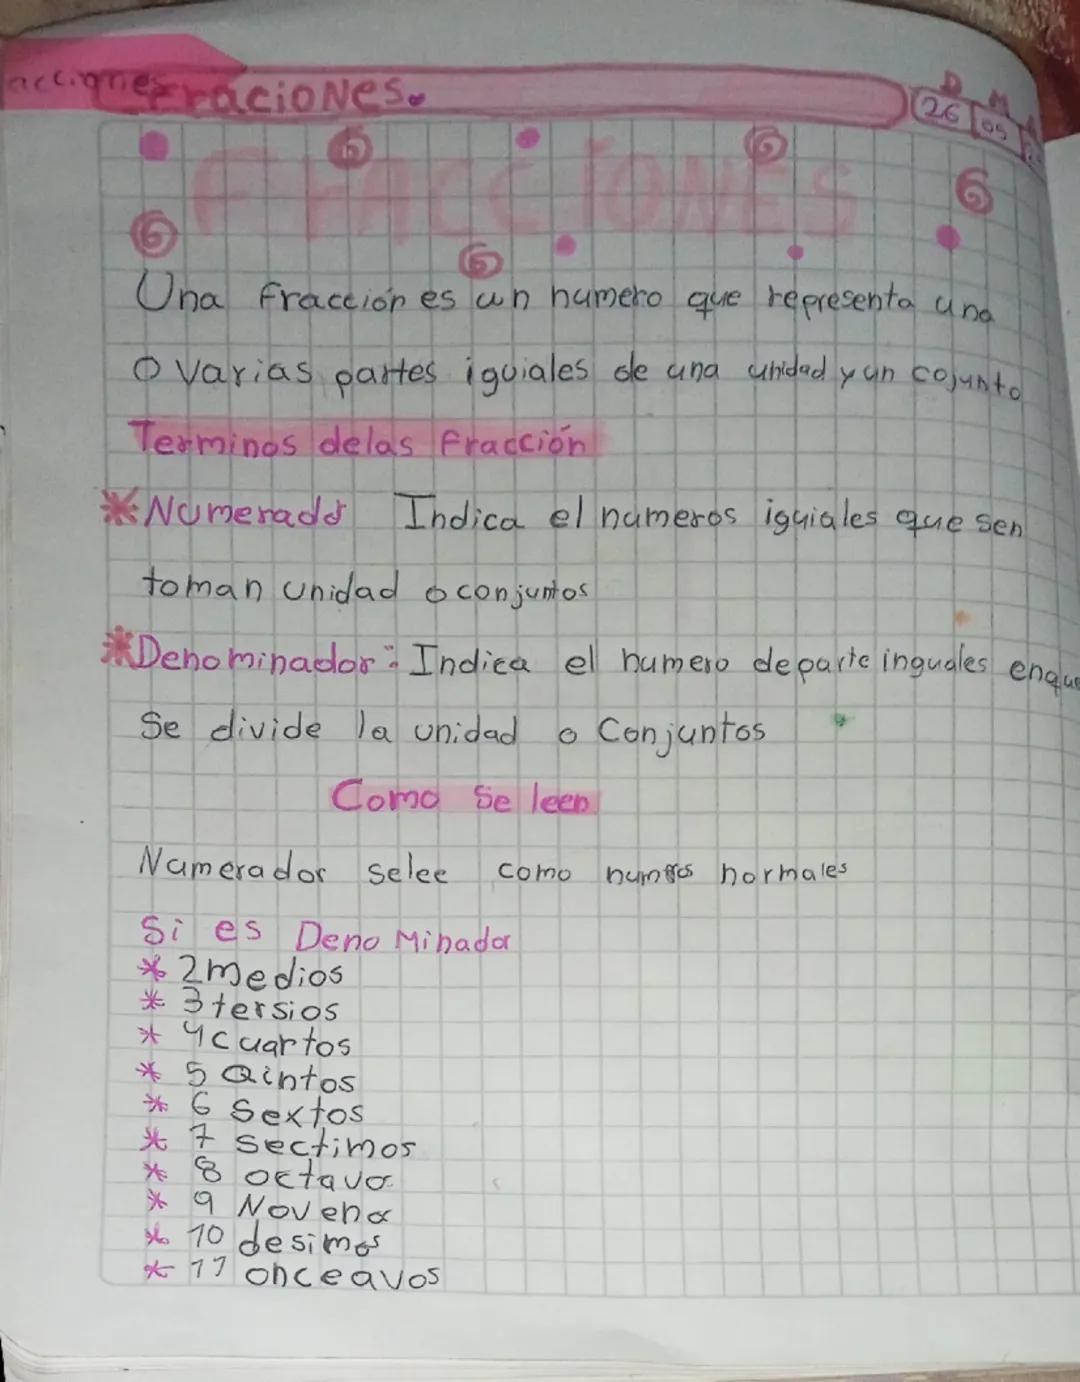 acciones
Fraciones.
D M A
26 05
FRACCIONES
Una fracción es un numero que representa una
o varias partes iguiales de una unidad y un cojunto
Terminos delas fracción
Numerador Indica el numeros iguiales que sen
toman unidad o conjuntos
Denominador: Indica el numero departe inguales enque
Se divide la unidad o Conjuntos
Como se leen
Numerador selee como numeros normales
Si es DenoMinador
2 medios
3 tersios
4 cuartos
5 Qintos
6 Sextos
7 sectimos
8 octavo
9 Novena
10 desimos
11 onceavos